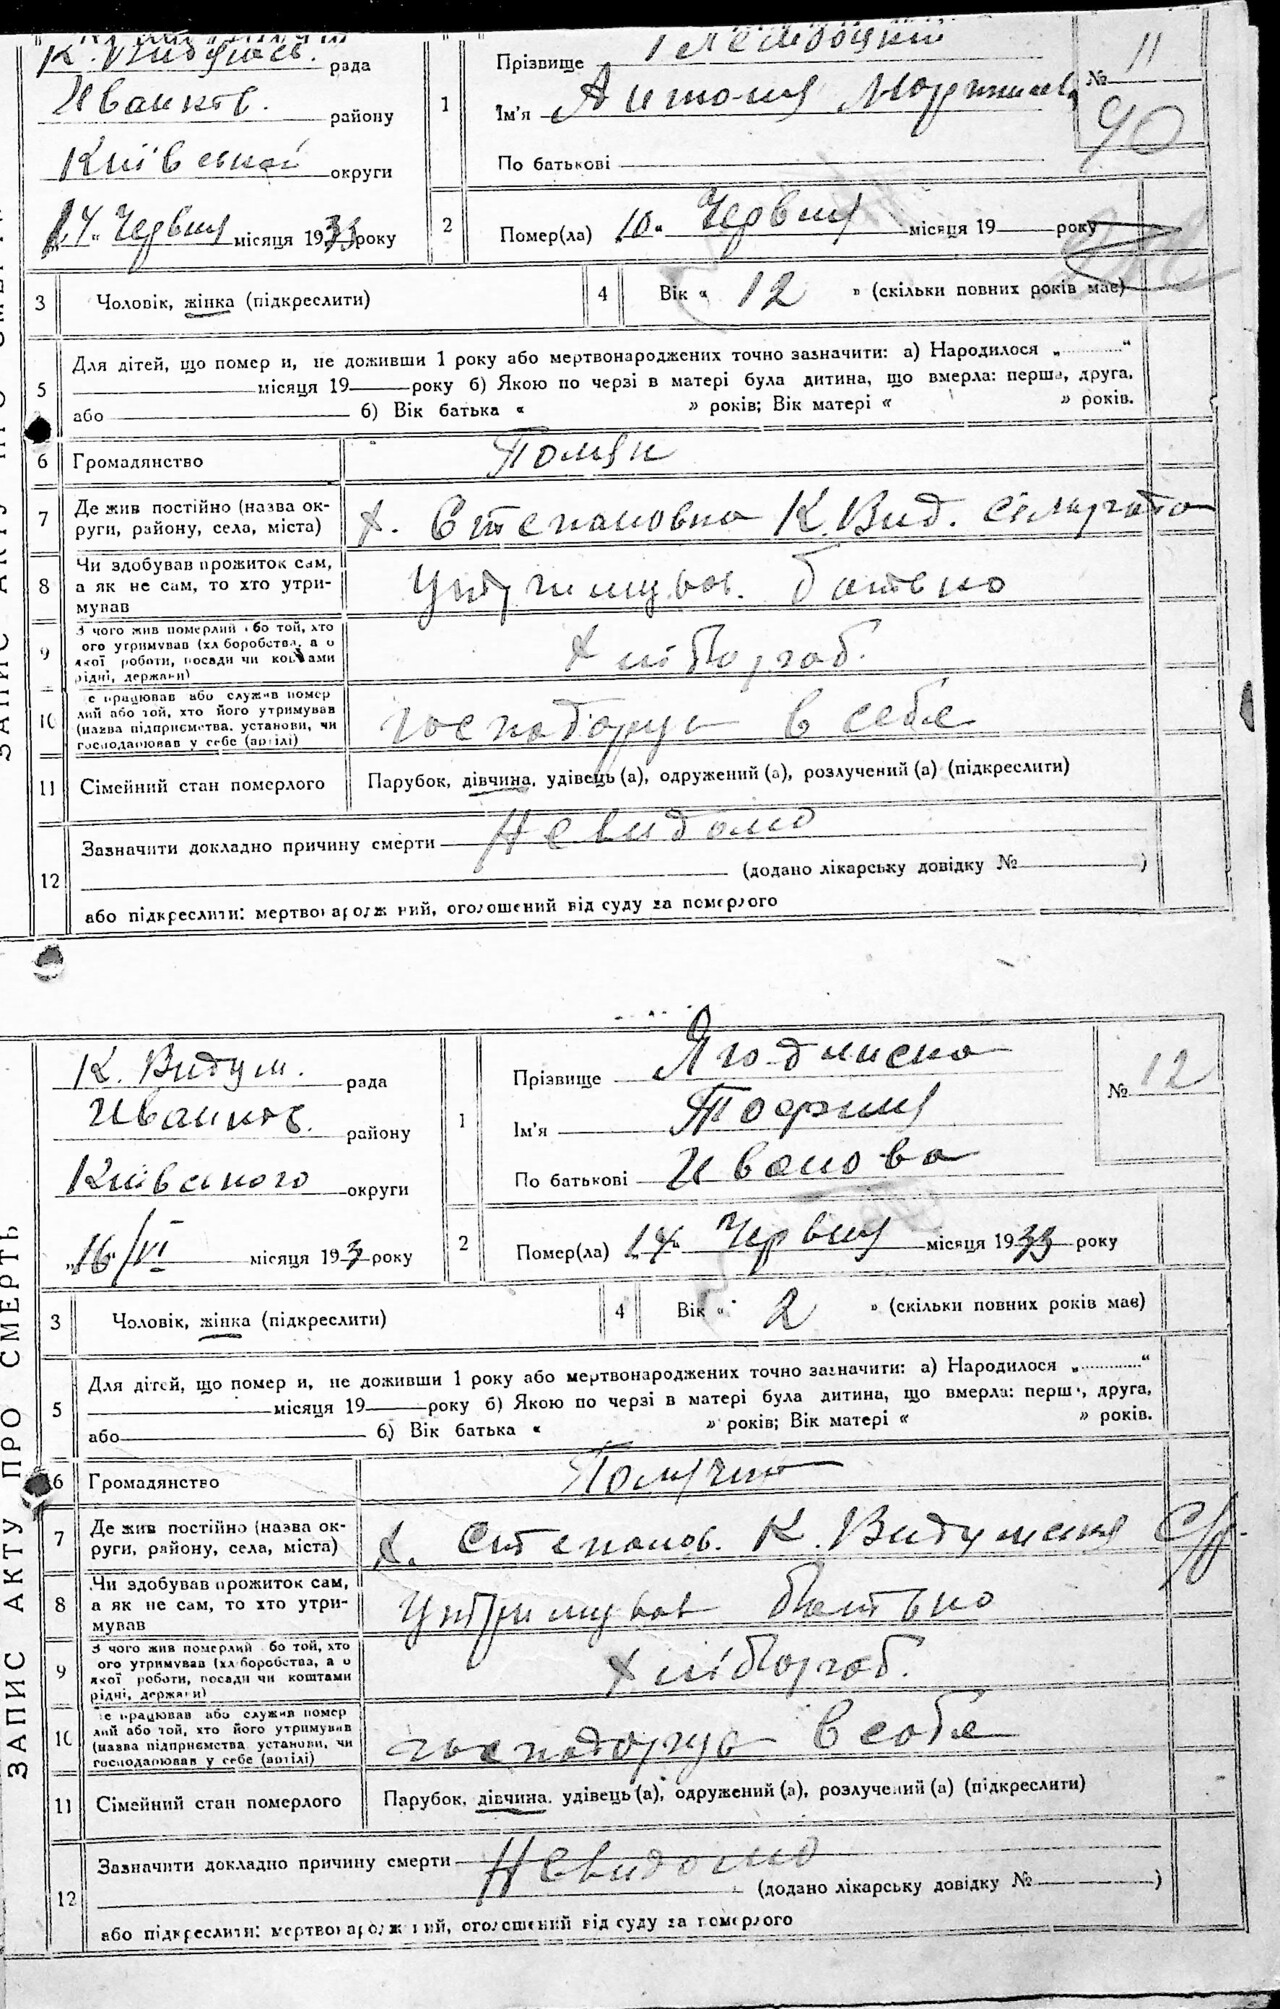 К. Видумсь. рада
Иванков. району
Київської округи
14 " Червня місяця 1933 року
1
Прізвище
Ім'я Антонія
По батькові
№ 11
90
2
Помер(ла) 10 " Червня місяця 19 року
3 Чоловік, жінка (підкреслити)
4 Вік « 12 » (скільки повних років має)
5 Для дітей, що померли, не доживши 1 року або мертвонароджених точно зазначити: а) Народилося „ “
місяця 19 року б) Якою по черзі в матері була дитина, що вмерла: перша, друга,
або б) Вік батька « » років; Вік матері « » років.
6 Громадянство
7 Де жив постійно (назва округи, району, села, міста) х. Степановка К. Вид. сільрада
8 Чи здобував прожиток сам, а як не сам, то хто утримував Утримував. батько
9 З чого жив померлий або той, хто його утримував (хліборобства, а о якої роботи, посади чи коштами рідні, держави) Хлібороб.
10 Де працював або служив померлий або той, хто його утримував (назва підприємства, установи, чи господарював у себе (артілі) господарує в себе
11 Сімейний стан померлого Парубок, дівчина, удівець(а), одружений(а), розлучений(а) (підкреслити)
12 Зазначити докладно причину смерти Невидомо
(додано лікарську довідку № )
або підкреслити: мертвонароджений, оголошений від суду за померлого
ЗАПИС АКТУ ПРО СМЕРТЬ
К. Видум. рада
Иванков. району
Київського округи
„16/VI місяця 193 3 року
1
Прізвище
Ім'я Зофия
По батькові Иванова
№ 12
2
Помер(ла) 14 " Червня місяця 1933 року
3 Чоловік, жінка (підкреслити)
4 Вік « 2 » (скільки повних років має)
5 Для дітей, що померли, не доживши 1 року або мертвонароджених точно зазначити: а) Народилося „ “
місяця 19 року б) Якою по черзі в матері була дитина, що вмерла: перша, друга,
або б) Вік батька « » років; Вік матері « » років.
6 Громадянство Полячка
7 Де жив постійно (назва округи, району, села, міста) х. Степанов. К. Видумская С/р.
8 Чи здобував прожиток сам, а як не сам, то хто утримував Утримував батько
9 З чого жив померлий або той, хто його утримував (хліборобства, а о якої роботи, посади чи коштами рідні, держави) Хлібороб.
10 Де працював або служив померлий або той, хто його утримував (назва підприємства, установи, чи господарював у себе (артілі) господарує в собе
11 Сімейний стан померлого Парубок, дівчина, удівець(а), одружений(а), розлучений(а) (підкреслити)
12 Зазначити докладно причину смерти Невидомо
(додано лікарську довідку № )
або підкреслити: мертвонароджений, оголошений від суду за померлого